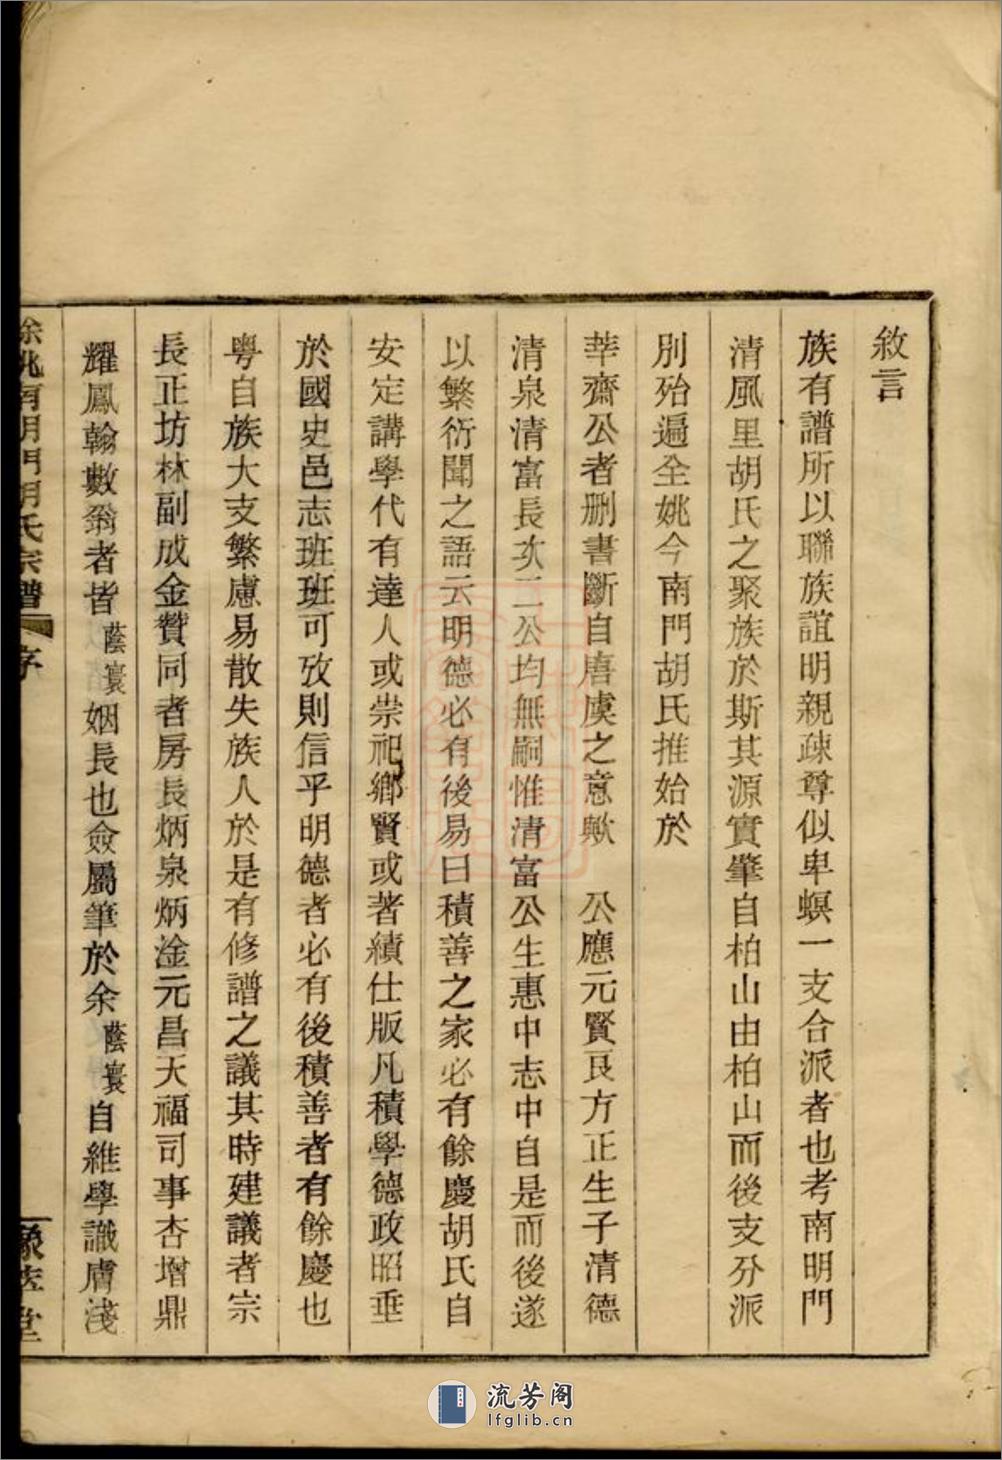 敘言
族有譜所以聯族誼明親疎尊似卑螟一支合派者也考南明門
清風里胡氏之聚族於斯其源實肇自柏山由柏山而後支分派
別殆遍全姚今南門胡氏推始於
莘齋公者刪書斷自唐虞之意歟 公應元賢良方正生子清德
清泉清富長次二公均無嗣惟清富公生惠中志中自是而後遂
以繁衍聞之語云明德必有後易曰積善之家必有餘慶胡氏自
安定講學代有達人或崇祀鄉賢或著績仕版凡積學德政昭垂
於國史邑志班班可攷則信乎明德者必有後積善者有餘慶也
粵自族大支繁慮易散失族人於是有修譜之議其時建議者宗
長正坊林副成金贊同者房長炳泉炳淦元昌天福司事杏增鼎
耀鳳翰數翁者皆蔭寰姻長也僉屬筆於余蔭寰自維學識膚淺
餘姚南明門胡氏宗譜 序
堂
流芳阁
lfglib.cn